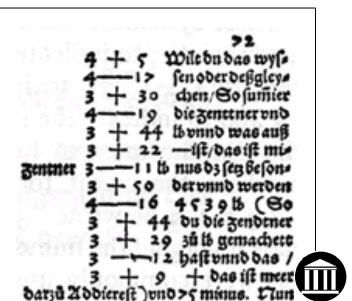 72
4 + 5 Wilt du das wyſ⸗
4 — 17 ſen oder deßgley⸗
3 + 30 chen/ So ſumier
4 — 19 die zenttner vnd
3 + 44 lb vnnd was auß
3 + 22 — iſt/ das iſt mi⸗
zentner 3 — 11 lb nus dz ſetz beſon⸗
3 + 50 der vnnd werden
4 — 16 4539 lb (So
3 + 44 du die zendtner
3 + 29 zů lb gemachett
3 — 12 haſt vnnd das /
3 + 9 + das iſt meer
darzů Addiereſt) vnd 75 minus. Nun